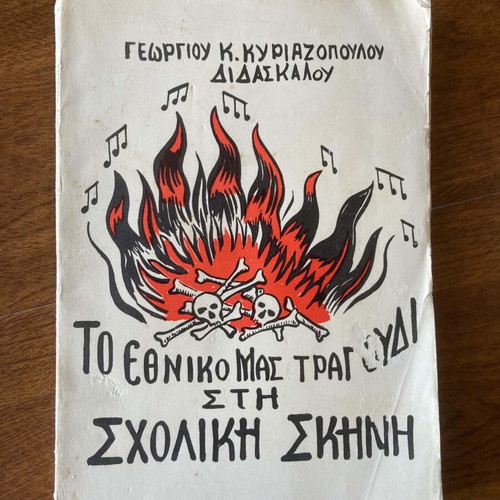 ΓΕΩΡΓΙΟΥ Κ. ΚΥΡΙΑΖΟΠΟΥΛΟΥ
ΔΙΔΑΣΚΑΛΟΥ
ΤΟ ΕΘΝΙΚΟ ΜΑΣ ΤΡΑΓΟΥΔΙ
ΣΤΗ
ΣΧΟΛΙΚΗ ΣΚΗΝΗ